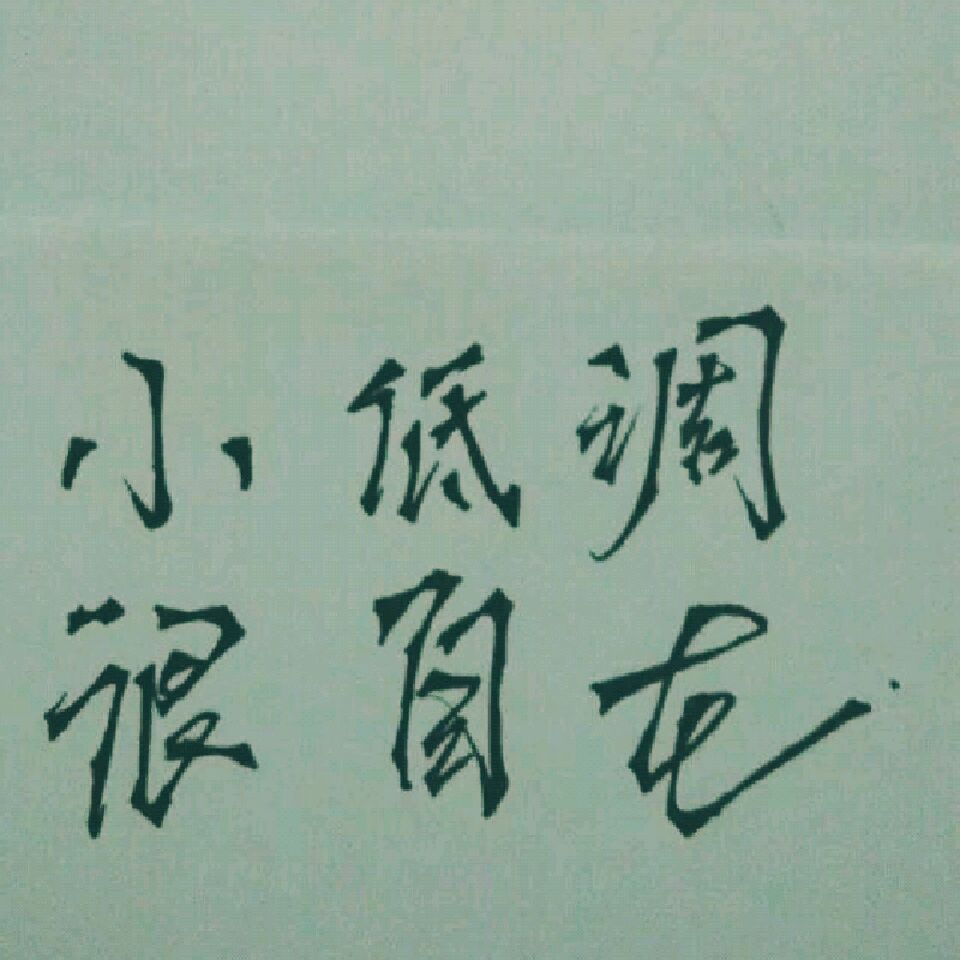 小低调
很自在